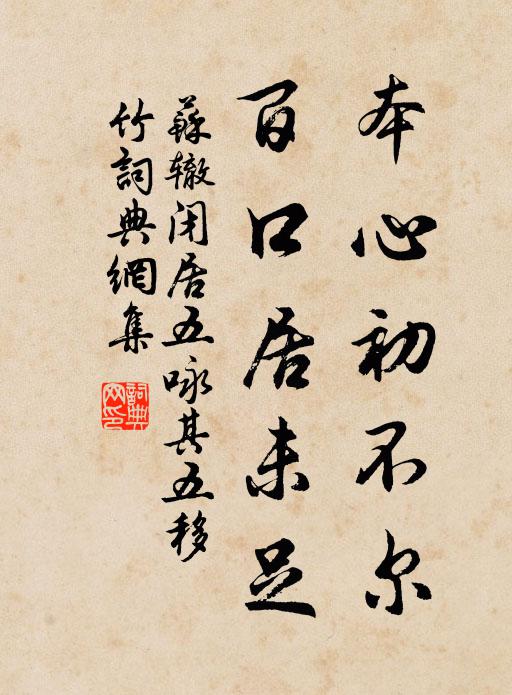 本心初不尔
百口居未足
蘇辙闭居五咏其五移
竹詞典網集
詞典
网印